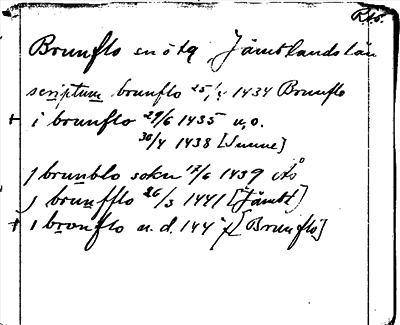 RAÖ.
Brunflo sn o tg Jämtlands län
scriptum brunflo 25/4 1434 Brunflo
+ i brunflo 29/6 1435 u, o.
30/4 1438 [Sunne]
j brunblo sokn 17/6 1439 Ås
j brunfflo 26/3 1441 [Jämtl]
+ i bronflo u. d. 144 [Brunflo]